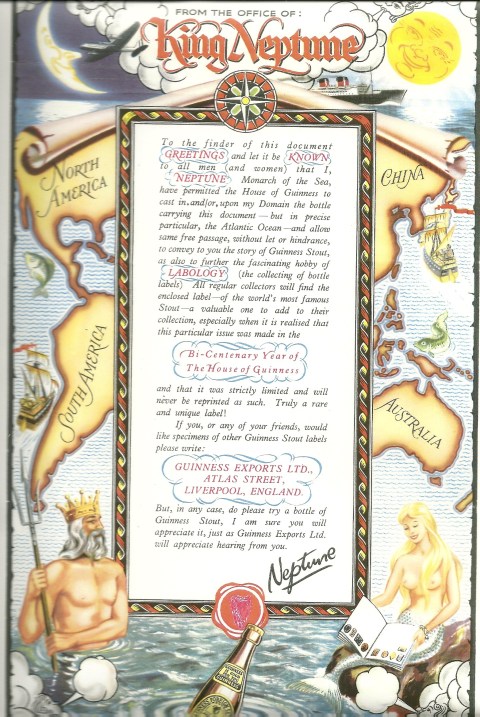 FROM THE OFFICE OF:
King Neptune
NORTH
AMERICA
CHINA
SOUTH AMERICA
AUSTRALIA
To the finder of this document
GREETINGS and let it be KNOWN,
to all men (and women) that I,
NEPTUNE Monarch of the Sea,
have permitted the House of Guinness to
cast in and/or, upon my Domain the bottle
carrying this document—but in precise
particular, the Atlantic Ocean—and allow
same free passage, without let or hindrance,
to convey to you the story of Guinness Stout,
as also to further the fascinating hobby of
LABOLOGY (the collecting of bottle
labels) All regular collectors will find the
enclosed label—of the world's most famous
Stout—a valuable one to add to their
collection, especially when it is realised that
this particular issue was made in the
Bi-Centenary Year of
The House of Guinness
and that it was strictly limited and will
never be reprinted as such. Truly a rare
and unique label!
If you, or any of your friends, would
like specimens of other Guinness Stout labels
please write:
GUINNESS EXPORTS LTD.,
ATLAS STREET,
LIVERPOOL, ENGLAND.
But, in any case, do please try a bottle of
Guinness Stout, I am sure you will
appreciate it, just as Guinness Exports Ltd.
will appreciate hearing from you.
Neptune